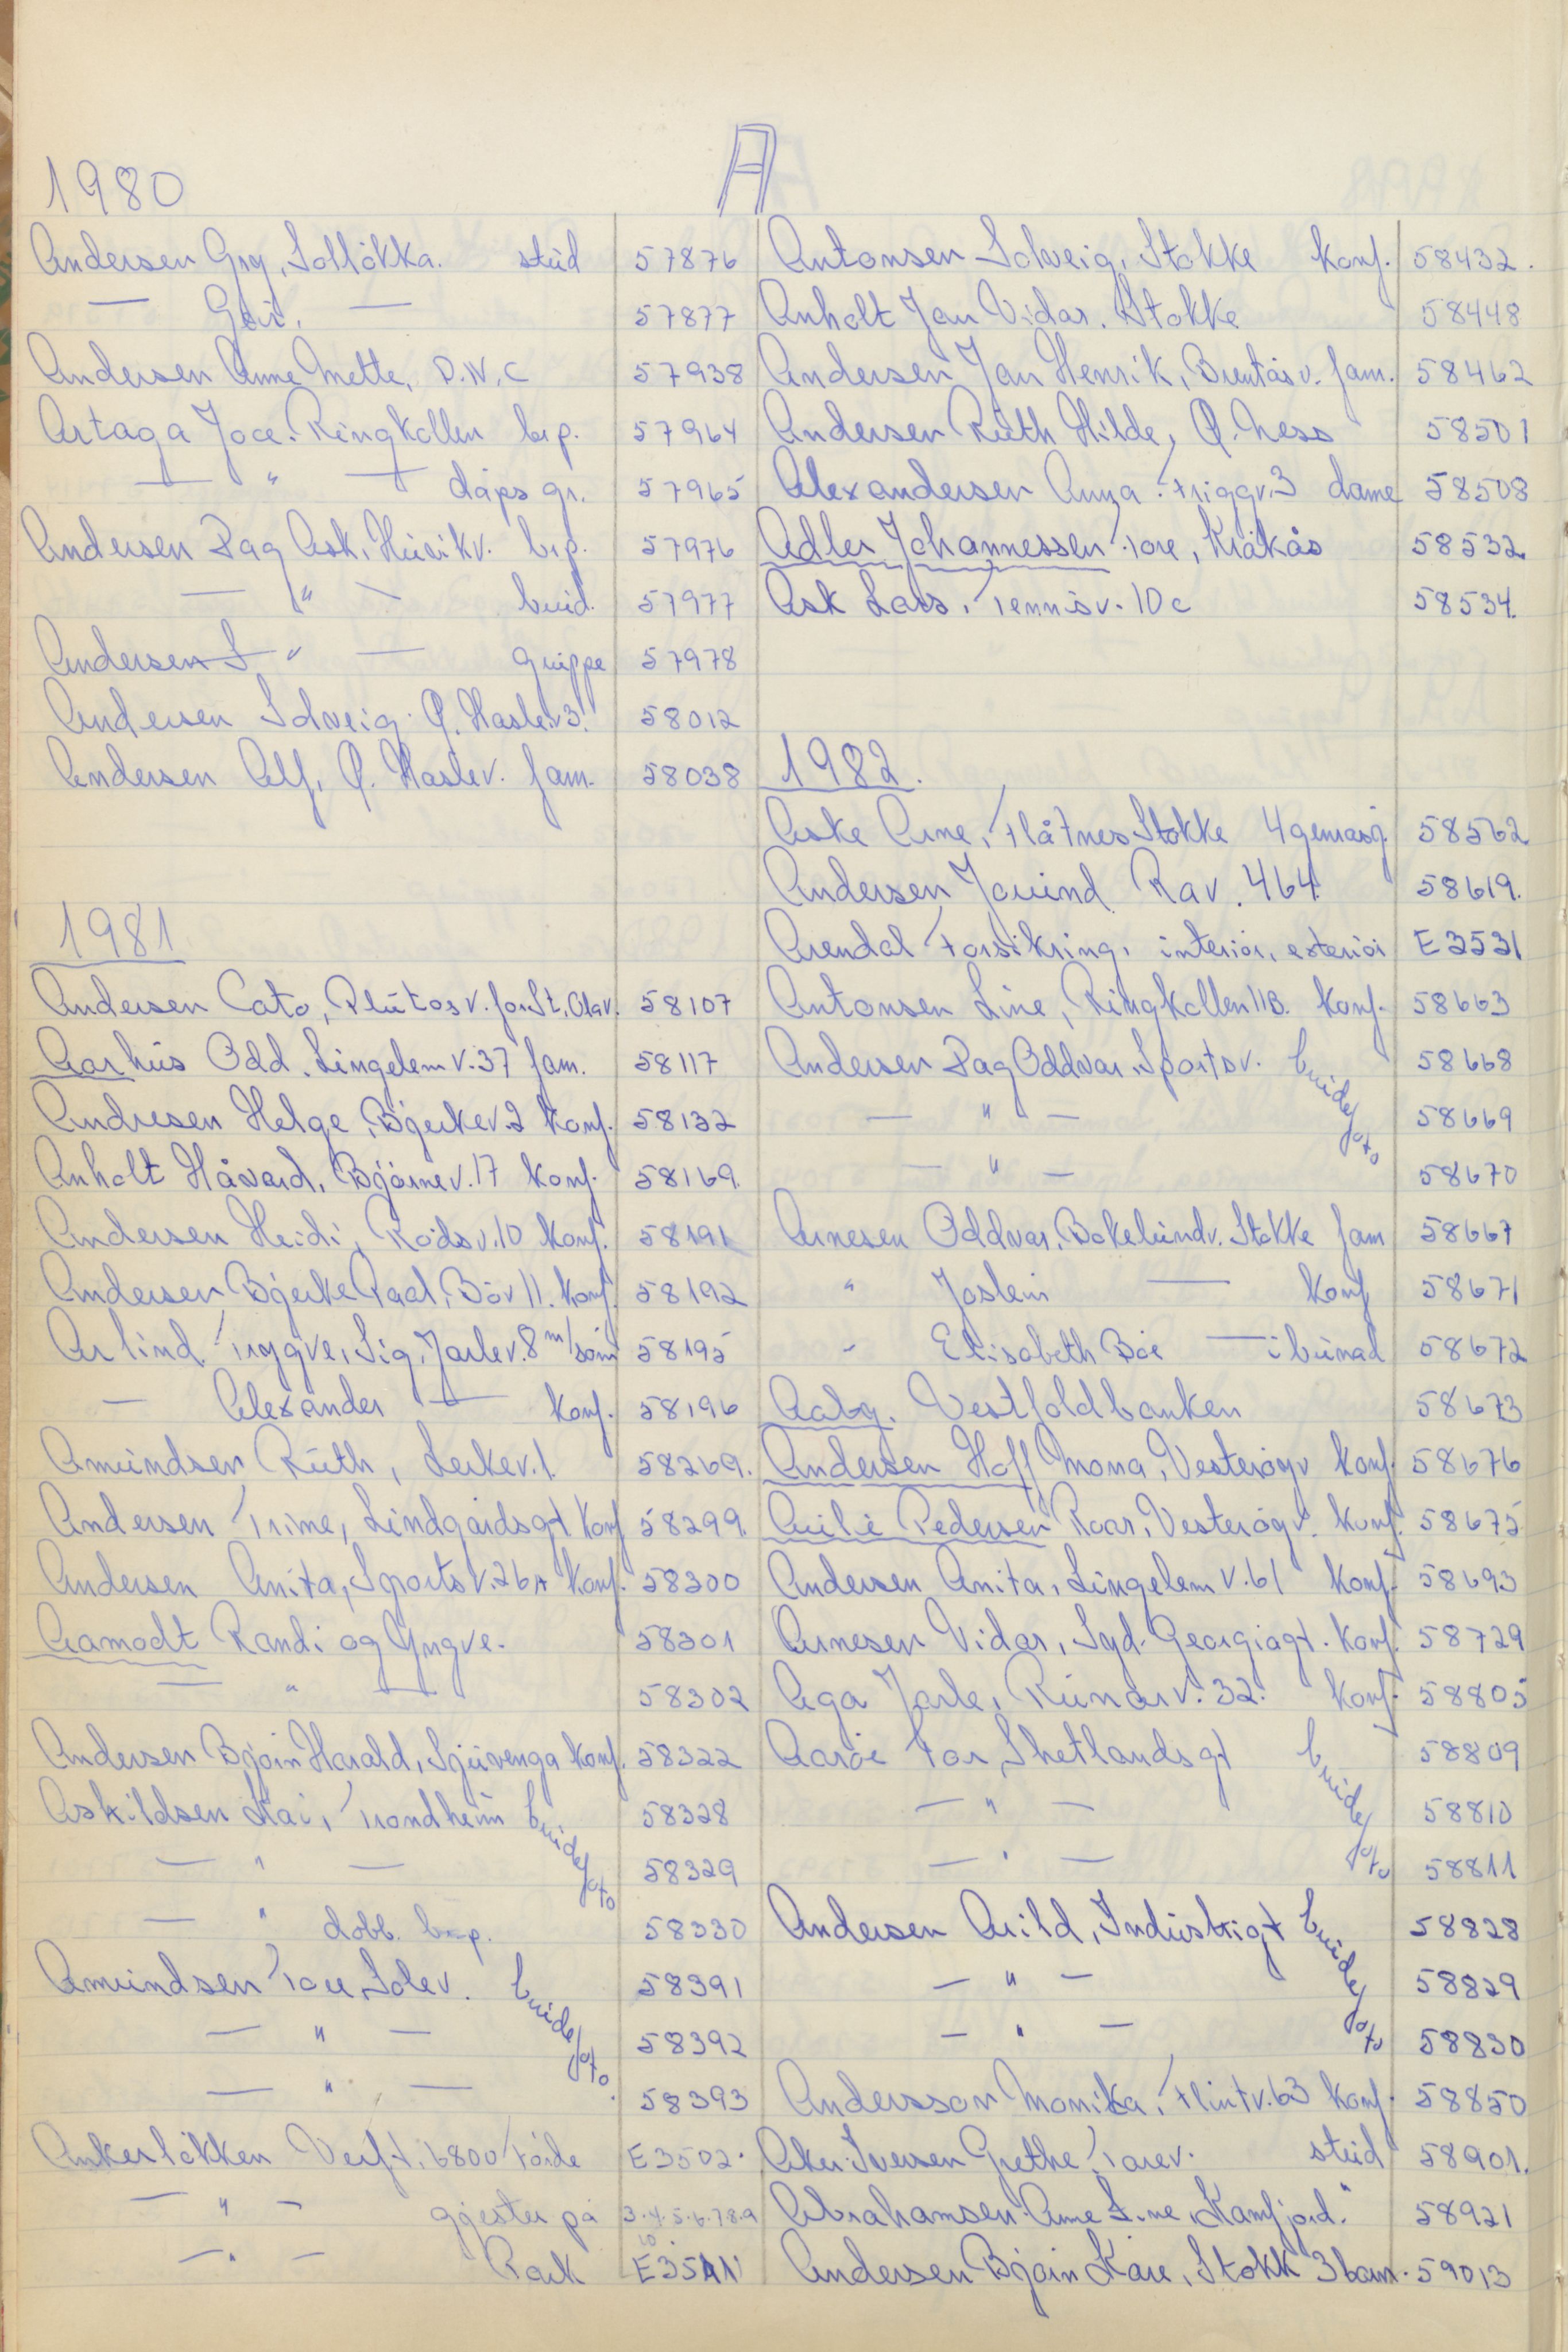 A
1980
Andersen Gry, Solløkka. stud 57876
— Geir. — 57877
Andersen Anne Mette, D.N.C 57938
Artaga Joce. Ringkollen brp. 57964
— " — dåps gr. 57965
Andersen Dag Ask, Husikv. brp. 57976
— " — brud. 57977
Andersen " — gruppe 57978
Andersen Solveig. Ø. Haslev 3. 58012
Andersen Alf, Ø. Haslev. fam. 58038
1981
Andersen Cato, Plutosv. for St. Olav. 58107
Aarhus Odd. Lingelemv. 37 fam. 58117
Andresen Helge, Bjerkev. 2 konf. 58132
Anholt Håvard, Bjørnev. 17 konf. 58169
Andersen Heidi, Rødsv. 10 konf. 58191
Andersen Bjerke Paal, Bøv 11. konf. 58192
Arlind Trygve, Sig. Jarlev. 8 m/sønn 58195
— Alexander — konf. 58196
Amundsen Ruth, Lerkev. 1. 58269.
Andersen Trine, Lindgårdsgt konf 58299.
Andersen Anita, Sportsv. 26A konf. 58300
Aamodt Randi og Yngve. 58301
— " — 58302
Andersen Bjørn Harald, Sjuvenga konf. 58322
Askildsen Kai, Trondheim brudefoto 58328
— " — 58329
— " dobb. brp. 58330
Amundsen Tore, Solev. brudefoto. 58391
— " — 58392
— " — 58393
Ankerløkken Verft, 6800 Førde E3502.
— " — gjester på 3.4.5.6.7.8.9 10
— " — Rank E3511
Antonsen Solveig, Stokke konf. 58432.
Anholt Jan Vidar. Stokke 58448
Andersen Jan Henrik, Bruntåsv. fam. 58462
Andersen Ruth Hilde, Ø. Ness 58501
Alexandersen Anna. Friggv. 3 dame 58508
Adler Johannessen Tore, Kråkås 58532.
Ask Lars, Tennisv. 10c 58534.
1982.
Aske Arne, Flåtnes Stokke 4 generasj. 58562
Andersen Jouind Rav. 464. 58619.
Arendal Forsikring, interiør, exteriør E3531
Antonsen Line, Ringkollen 11B. konf. 58663
Andersen Dag Oddvar. Sportsv. brudefoto 58668
— " — 58669
— " — 58670
Arnesen Oddvar, Bokelundv. Stokke fam 58667
" Joslein — konf 58671
" Elisabeth Bøe — i bunad 58672
Aaby. Vestfoldbanken 58673
Andersen Hoff Mona, Vesterøyv konf. 58676
Arilie Pedersen Roar, Vesterøyv. konf. 58675
Andersen Anita, Lingelemv. 61 konf. 58693
Arnesen Vidar, Syd-Georgiagt. konf. 58729
Aga Jarle, Runarv. 32. konf. 58805
Aarøe Tor, Shetlandsgt brudefoto 58809
— " — 58810
— " — 58811
Andersen Arild, Industrigt brudefoto 58828
— " — 58829
— " — 58830
Andersson Monika, Flintv. 63 konf. 58850
Aker Iversen Grethe Torev. stud 58901.
Abrahamsen Anne Line "Ramfjord." 58921
Andersen Bjørn Kåre, Stokk 3 barn. 59013